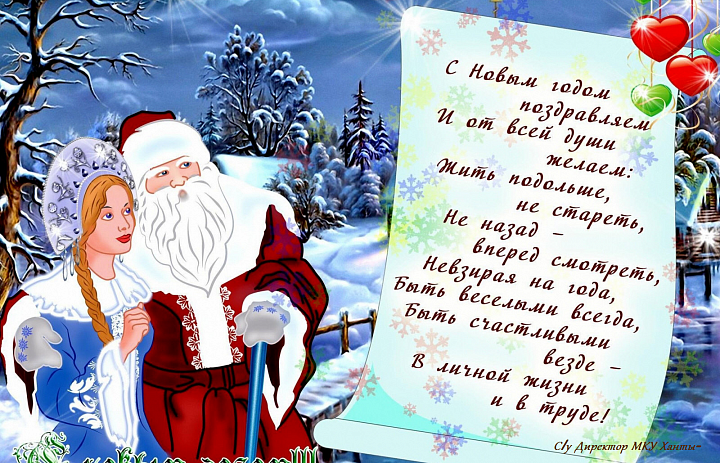 С Новым годом
поздравляем
И от всей души
желаем:
Жить подольше,
не стареть,
Не назад –
вперед смотреть,
Невзирая на года,
Быть веселыми всегда,
Быть счастливыми
везде –
В личной жизни
и в труде!
С/у Директор МКУ Ханты-